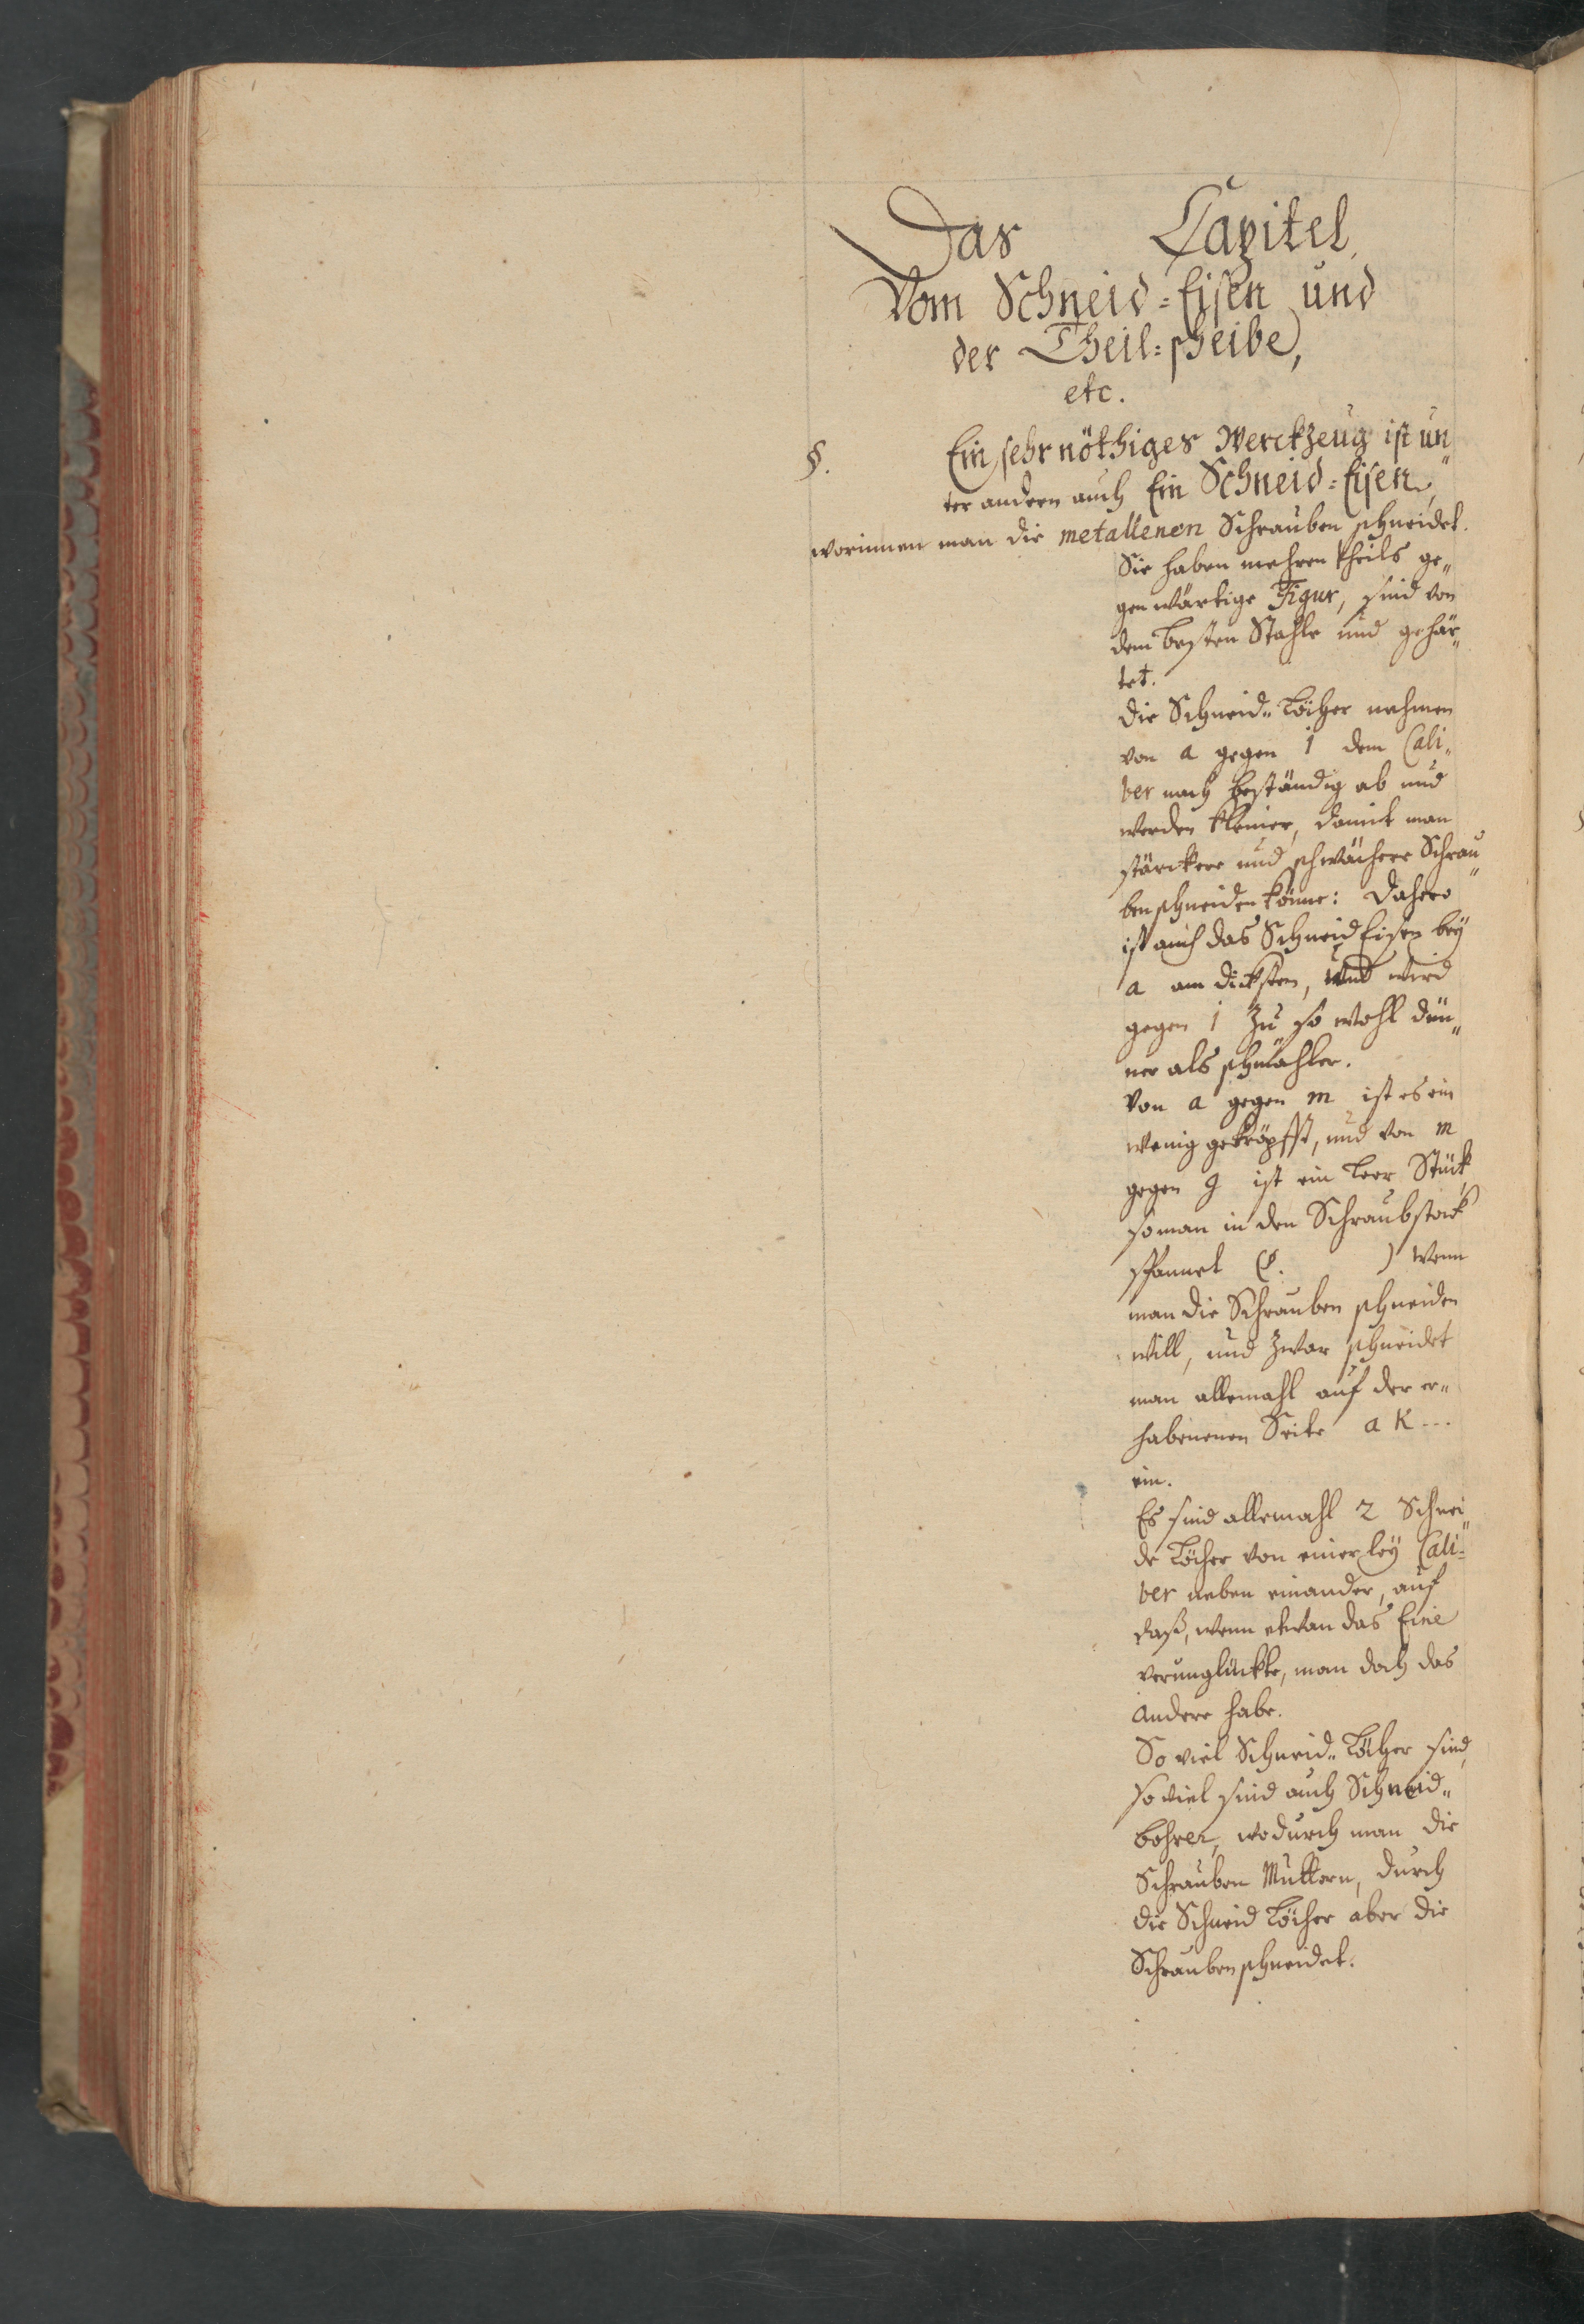 Das Capitel,
Vom Schneid=Eisen und
der Theil=scheibe,
etc.
§. Ein sehr nöthiges Werckzeug ist un„
ter andern auch Ein Schneid=Eisen,
worinnen man die metallenen Schrauben schneidet.
Sie haben mehren theils ge„
genwärtige Figur, sind von
dem besten Stahle und gehär„
tet.
Die Schneid„Löcher nehmen
von a gegen i dem Cali„
ber nach beständig ab und
werden kleiner, damit man
stärckere und schwächere Schrau„
ben schneiden könne: Dahero
ist auch das Schneid Eisen bey
a am dicksten, und wird
gegen i zu so wohl dün„
ner als schmähler.
Von a gegen m ist es ein
wenig gekröpfft, und von m
gegen g ist ein leer Stück,
so man in den Schraubstock
spannet (§. ) wenn
man die Schrauben schneiden
will, und zwar schneidet
man allemahl auf der er„
habenenen Seite a K ...
ein.
Es sind allemahl 2 Schnei„
de Löcher von einerley Cali„
ber neben einander, auf
daß, wenn etwan das Eine
verunglückte, man doch das
andere habe.
So viel Schneid„Löcher sind,
so viel sind auch Schneid„
bohrer, wodurch man die
Schrauben Muttern, durch
die Schneid Löcher aber die
Schrauben schneidet.